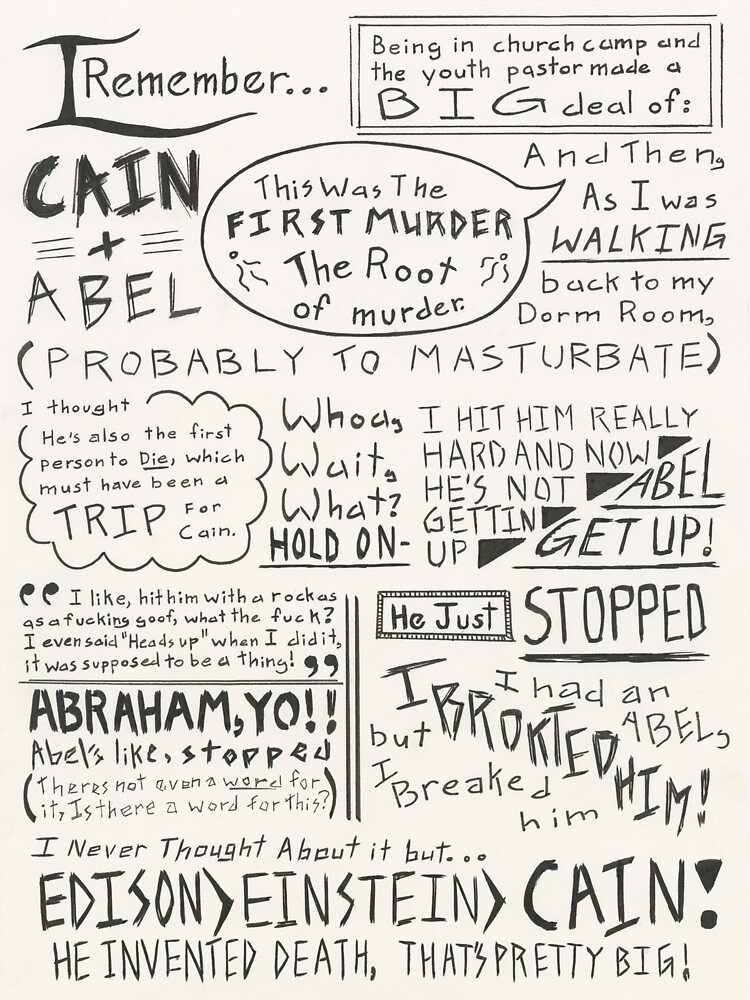 I Remember...
Being in church camp and
the youth pastor made a
BIG deal of:
CAIN
+
ABEL
This Was The
FIRST MURDER
The Root
of murder.
And Then,
As I was
WALKING
back to my
Dorm Room,
(PROBABLY TO MASTURBATE)
I thought
He's also the first
person to Die, which
must have been a
TRIP For
Cain.
Whoa,
Wait,
What?
HOLD ON-
I HIT HIM REALLY
HARD AND NOW
HE'S NOT
GETTIN
UP
ABEL
GET UP!
"I like, hit him with a rock as
as a fucking goof, what the fuck?
I even said "Heads up" when I did it,
it was supposed to be a thing!"
ABRAHAM, YO!!
Abel's like, stopped
(theres not even a word for
it, Is there a word for this?)
He Just STOPPED
I had an
ABEL,
but
I BROKTED HIM!
I Breaked
him
I Never Thought About it but...
EDISON> EINSTEIN> CAIN!
HE INVENTED DEATH, THAT'S PRETTY BIG!